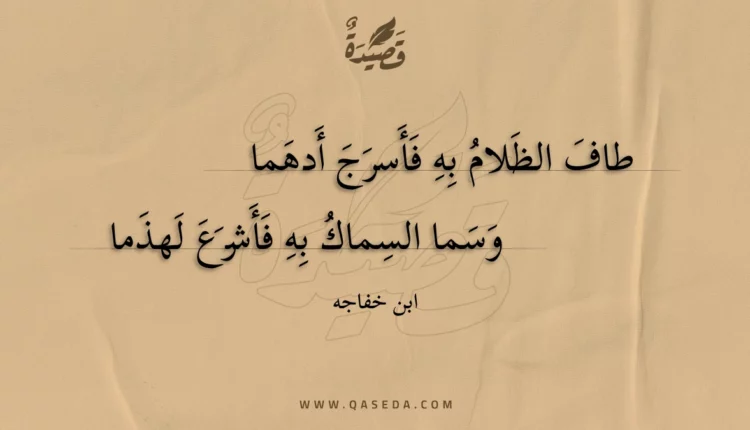 قَصِيدَةٌ
طافَ الظَلامُ بِهِ فَأَسرَجَ أَدهَما
وَسَما السِماكُ بِهِ فَأَشرَعَ لَهذَما
ابن خفاجه
WWW.QASEDA.COM